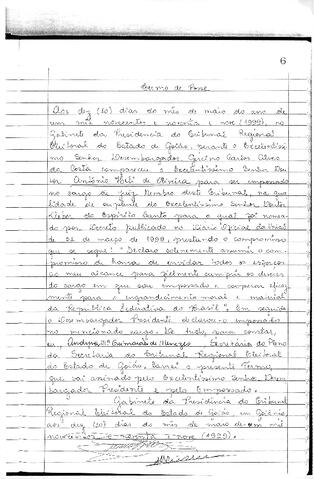 6
Termo de Posse
Aos dez (10) dias do mês de maio do ano de
um mil novecentos e noventa e nove (1999), no
Gabinete da Presidência do Tribunal Regional
Eleitoral do Estado de Goiás, perante o Excelentíssi-
mo Senhor Desembargador Gercino Carlos Alves
da Costa compareceu o Excelentíssimo Senhor Dou-
tor Antônio Heli de Oliveira para ser empossado
no cargo de Juiz Membro deste Tribunal, na qua-
lidade de suplente do Excelentíssimo Senhor Doutor
do Espírito Santo para o qual foi nomea-
do por Decreto publicado no Diário Oficial da União
de 31 de março de 1999, prestando o compromisso
que se segue: "Declaro solenemente assumir o com-
promisso de honra de envidar todos os esforços
ao meu alcance para fielmente cumprir os deveres
do cargo em que sou empossado e cooperar eficaz-
mente para o engrandecimento moral e material
da República Federativa do Brasil". Em seguida
o Desembargador Presidente declarou-o empossado
no mencionado cargo. De tudo, para constar,
eu, Guimarães Menezes Secretária do Pleno
da Secretaria do Tribunal Regional Eleitoral
do Estado de Goiás, lavrei o presente Termo,
que vai assinado pelo Excelentíssimo Senhor Desem-
bargador Presidente e pelo Empossado.
Gabinete da Presidência do Tribunal
Regional Eleitoral do Estado de Goiás, em Goiânia,
aos dez (10) dias do mês de maio de um mil
novecentos e noventa e nove (1999).